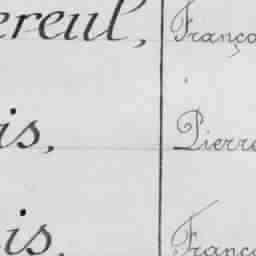 ereul, Franço
is, Pierre
is. Franço